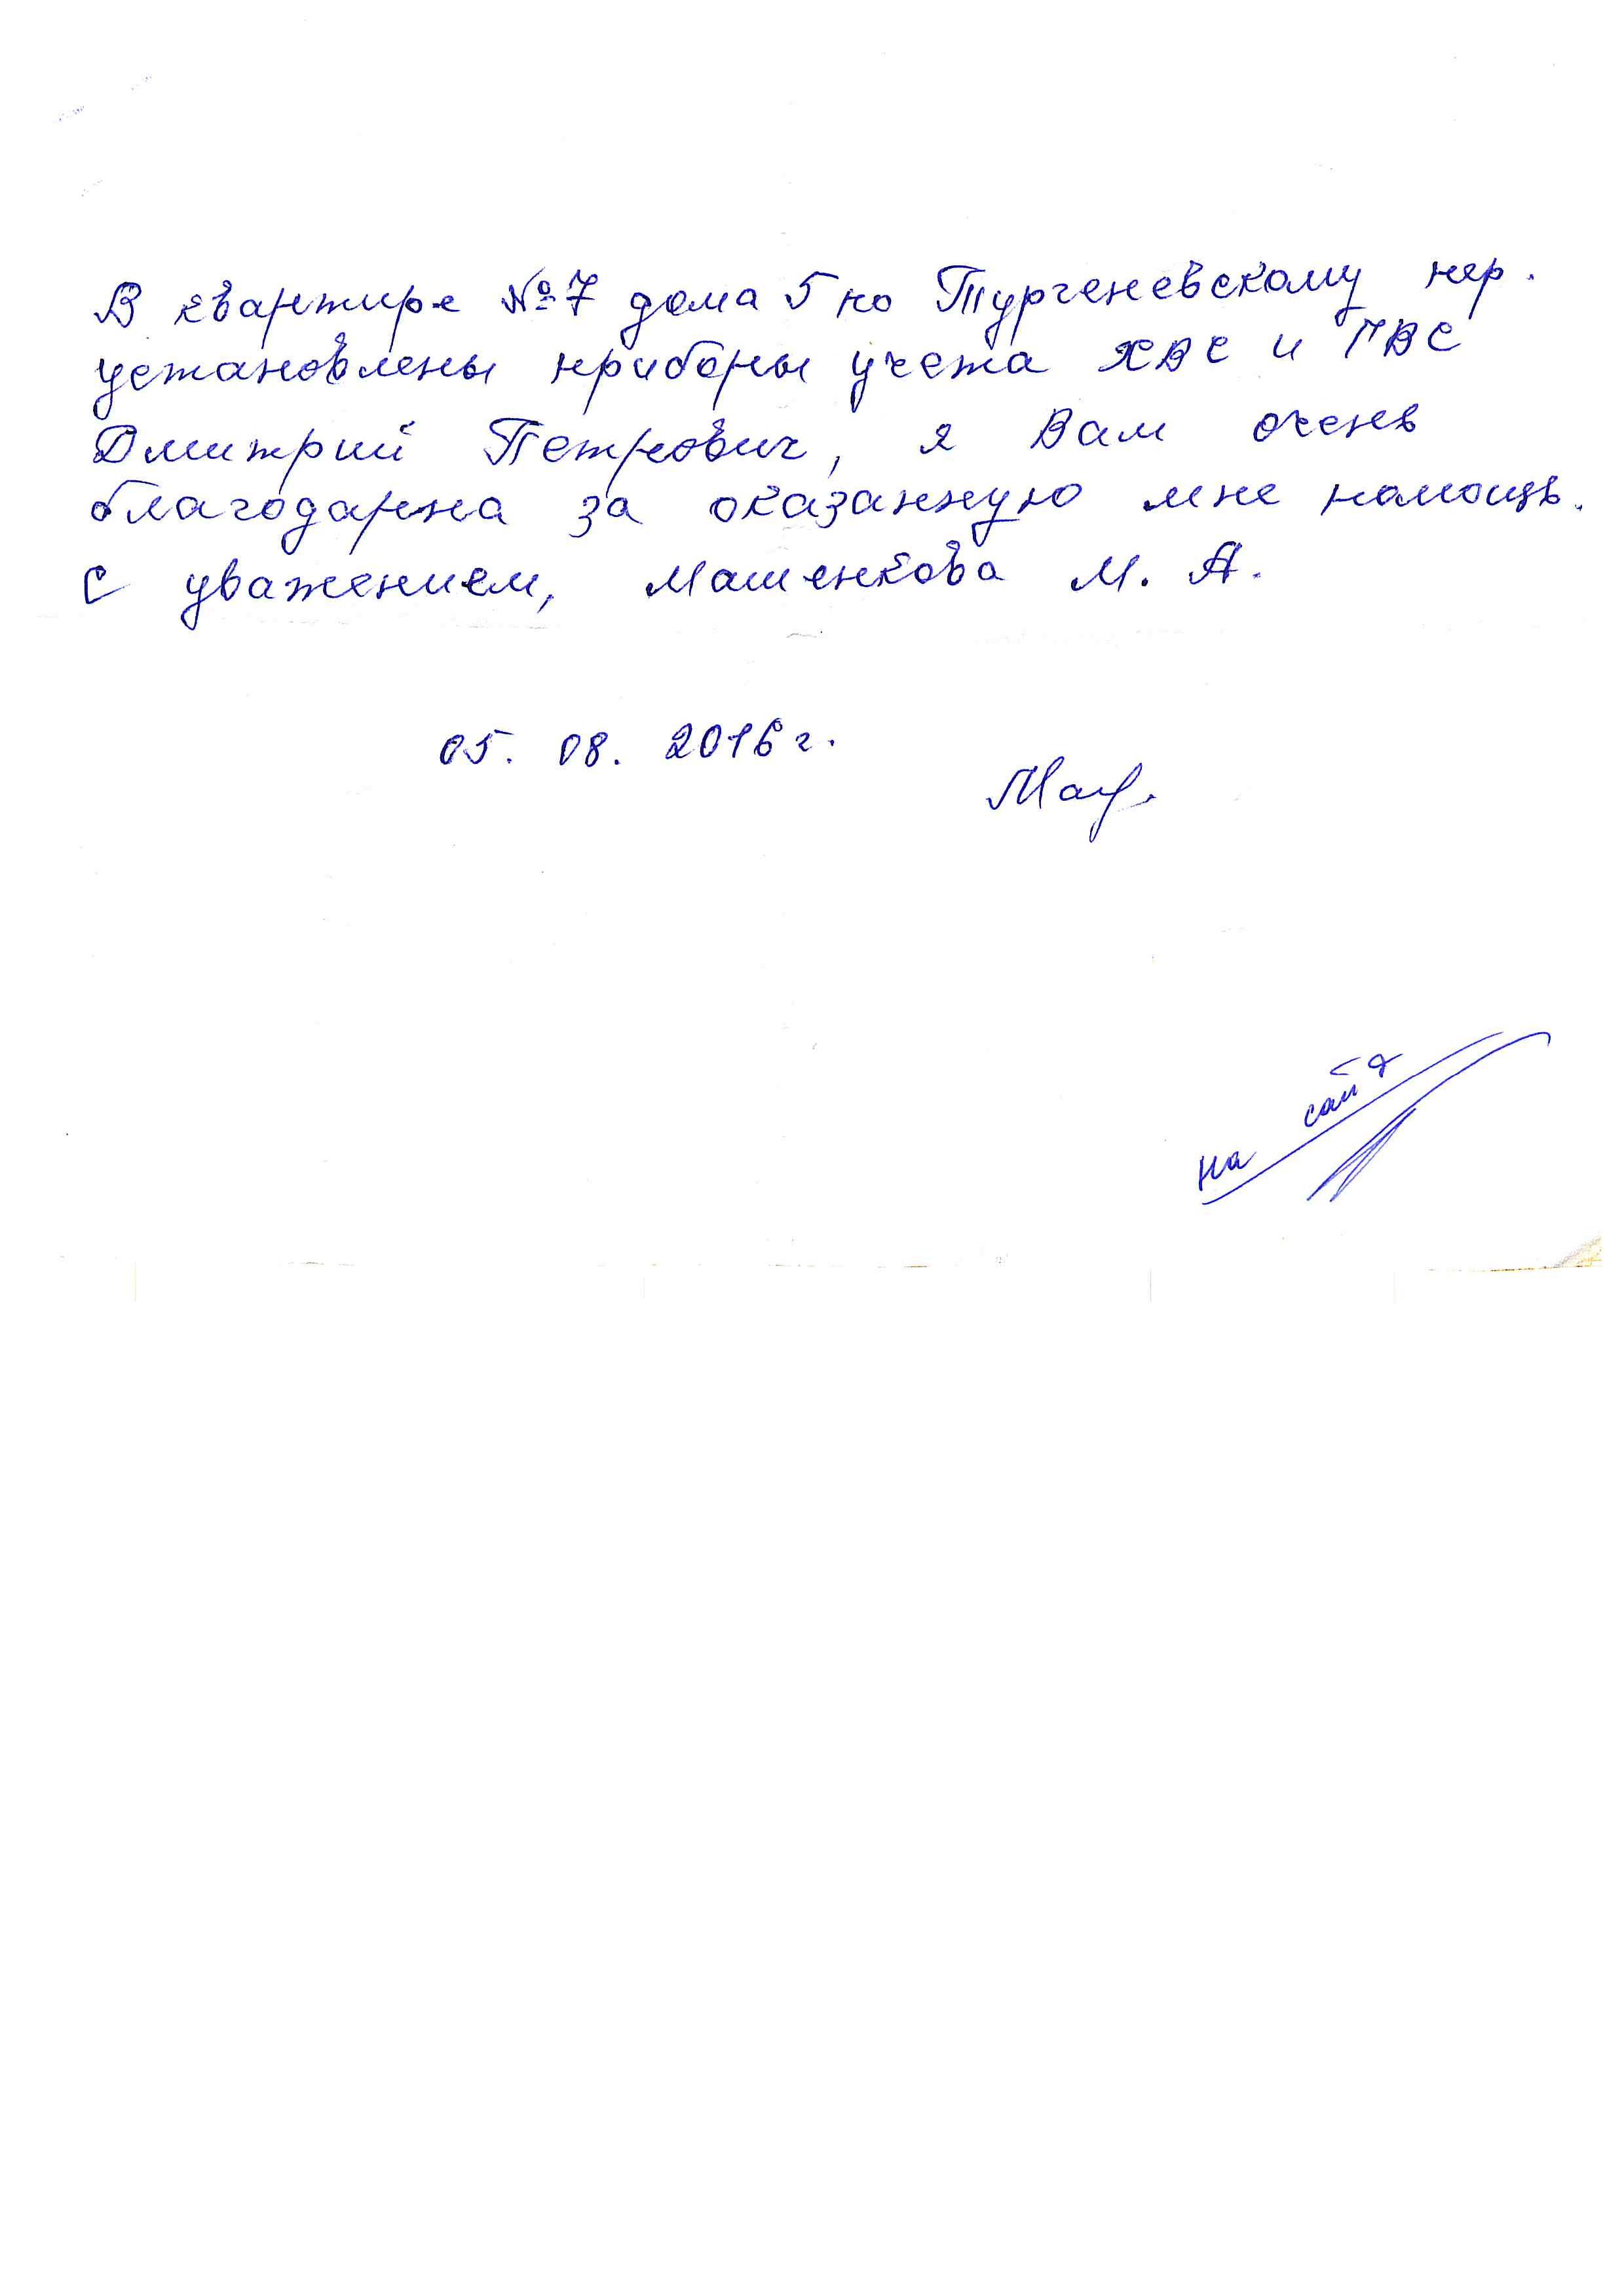 В квартире №7 дома 5 по Тургеневскому пер.
установлены приборы учета ХВС и ГВС
Дмитрий Петрович, я Вам очень
благодарна за оказанную мне помощь.
С уважением, Машенкова М. А.
05. 08. 2016 г.
Маш.
на сайт